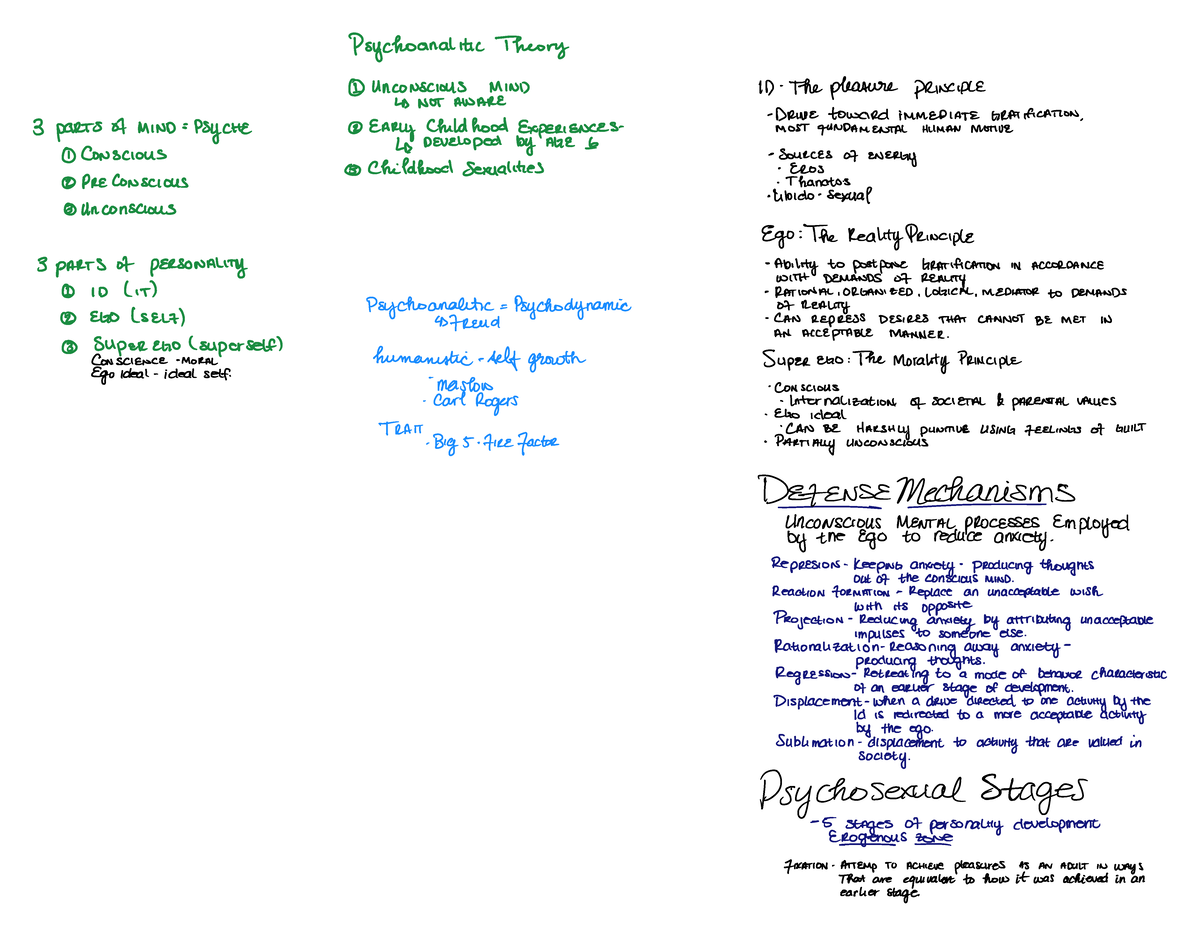 Psychoanalitic Theory
① Unconscious Mind
↳ Not aware
② Early Childhood Experiences-
↳ Developed by Age 6
③ Childhood Sexualities
3 parts of Mind = Psyche
① Conscious
② Pre Conscious
③ Unconscious
3 parts of personality
① ID (it)
② Ego (self)
③ Super ego (superself)
Conscience - Moral
Ego Ideal - ideal self.
Psychoanalitic = Psychodynamic
↳ Freud
humanistic - self growth
· maslow
· Carl Rogers
Trait
· Big 5 · Five Factor
ID · The pleasure principle
- Drive toward immediate gratification,
most fundamental human motive
- Sources of energy
· Eros
· Thanatos
· Libido - Sexual
Ego: The Reality Principle
- Ability to postpone gratification in accordance
with demands of reality
- Rational, organized, logical, mediator to demands
of reality
- Can repress desires that cannot be met in
an acceptable manner.
Super ego: The Morality Principle
· Conscious
· Internalization of societal & parental values
· Ego ideal
· Can be harshly punitive using feelings of guilt
· Partially unconscious
Defense Mechanisms
Unconscious mental processes Employed
by the Ego to reduce anxiety.
Represion - Keeping anxiety - producing thoughts
out of the conscious mind.
Reaction Formation - Replace an unacceptable wish
with its opposite
Projection - Reducing anxiety by attributing unacceptable
impulses to someone else.
Rationalization - Reasoning away anxiety -
producing thoughts.
Regression - Retreating to a mode of behavior characteristic
of an earlier stage of development.
Displacement - when a drive directed to one activity by the
Id is redirected to a more acceptable activity
by the ego.
Sublimation - displacement to activity that are valued in
society.
Psychosexual Stages
- 5 stages of personality development
Erogenous zone
Fixation - Attemp to achieve pleasures as an adult in ways
That are equivalent to how it was achieved in an
earlier stage.